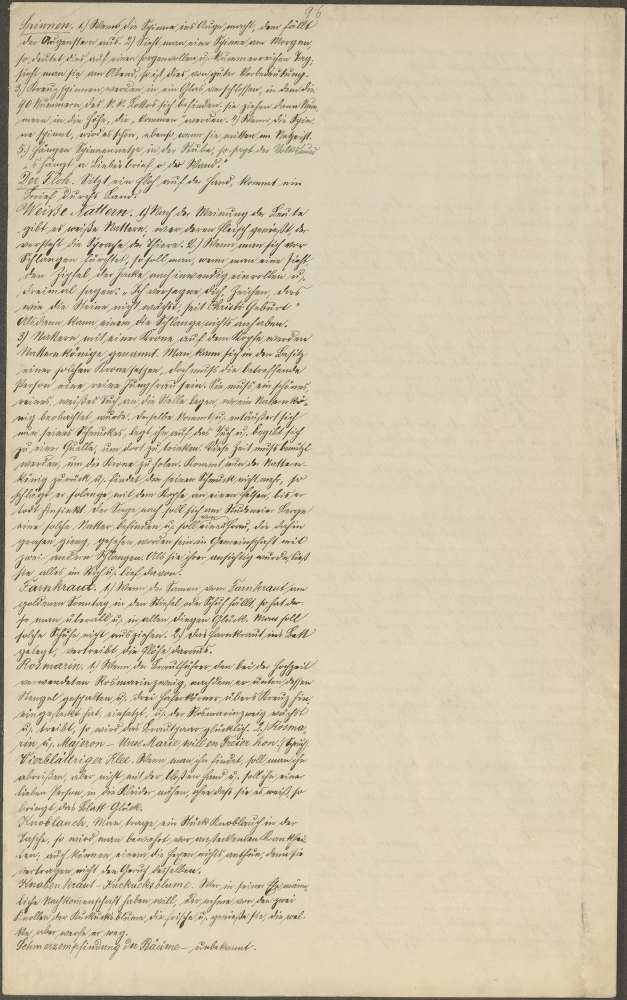 96
Spinnen. 1) Wenn die Spinne ins Auge macht, dann fällt
der Augenstern aus. 2) Sieht man eine Spinne am Morgen
so deutet dies auf einen sorgenvollen u. kummerreichen Tag,
sieht man sie am Abend, so ist dies von guter Vorbedeutung.
3) Kreuzspinnen werden in ein Glas verschlossen, in dem die
90 Nummern des k. k. Lottos sich befinden. Sie ziehen dann Num
mern in die Höhe, die kommen werden. 4) Wenn die Spin
ne spinnt, wird es schön, ebenso wenn sie mitten im Netze ist.
5) Hängen Spinnennetze in der Stube, so sagt der Volksmund
„'s hängt a Liebesbrief o der Wand."
Der Floh. Sitzt ein Floh auf der Hand, kommt ein
Brief durchs Land.
Weiße Nattern. 1) Nach der Meinung der Leute
gibt es weiße Nattern, wer deren Fleisch genießt, der
versteht die Sprache der Thiere. 2) Wenn man sich vor
Schlangen fürchtet, so soll man, wenn man eine sieht
den Zipfel der Jacke nach inwendig einrollen u.
dreimal sagen: „Ich versegne dich Zeichen, dass
wie die Steine nicht wächst, seit Christi Geburt"
Alsdann kann einem die Schlange nichts anhaben.
3) Nattern mit einer Krone auf dem Kopfe werden
Natternkönige genannt. Man kann sich in den Besitz
einer solchen Krone setzen, doch muß die betreffende
Person eine reine Jungfrau sein. Sie muß ein schönes
reines, weißes Tuch an die Stelle legen, wo ein Natternkö-
nig beobachtet wurde. Derselbe kommt u. entäußert sich
nun seines Schmuckes, legt ihn auf das Tuch u. begibt sich
zu einer Quelle, um dort zu trinken. Diese Zeit muß benützt
werden, um die Krone zu holen. Kommt nun der Nattern-
könig zurück u. findet den seinen Schmuck nicht mehr, so
schlägt er solange mit dem Kopfe an einen Felsen, bis er
todt hinsinkt. Der Sage nach soll sich am Berge
eine solche Natter befinden u. soll von einer Frau, die dahin
grasen ging, gesehen worden sein in Gemeinschaft mit
zwei andern Schlangen. Als sie ihrer ansichtig wurde, ließ
sie alles im Stich u. lief davon.
Farnkraut. 1) Wenn der Samen vom Farnkraut am
goldenen Sonntag in den Stiefel oder Schuh fällt, so hat der-
so man überall u. in allen Dingen Glück. Man soll
solche Schuhe nicht ausziehen. 2) Das Farnkraut ins Bett
gelegt, vertreibt die Flöhe daraus.
Rosmarin. 1) Wenn der Brautführer den bei der Hochzeit
verwendeten Rosmarinzweig, nachdem er unten dessen
Stengel gespalten u. drei Haferkörner übers Kreuz hin
eingesteckt hat, einsetzt, u. der Rosmarinzweig wächst
u. treibt, so wird das Brautpaar glücklich. 2) Rosma
rin u. Majoron – Unse Marie will en Freier hon. (Spruch)
Vierblättriger Klee. Wenn man ihn findet, soll man ihn
abreißen, aber nicht mit der bloßen Hand u. soll ihn einer
lieben Person in die Kleider nähen, ohne daß sie es weiß, so
bringt das Blatt Glück.
Knoblauch. Man trage ein Stück Knoblauch in der
Tasche, so wird man bewahrt vor ansteckenden Krankhei
ten, auch können einem die Hexen nichts anthun, denn sie
vertragen nicht den Geruch desselben.
Knabenkraut – Kuckucksblume. Wer in seiner Ehe männ
liche Nachkommenschaft haben will, der nehme von den zwei
Knollen der Kuckucksblume, die frische u. genieße sie, die wel-
ke aber werfe er weg.
Schmerzempfindung der Bäume – unbekannt.